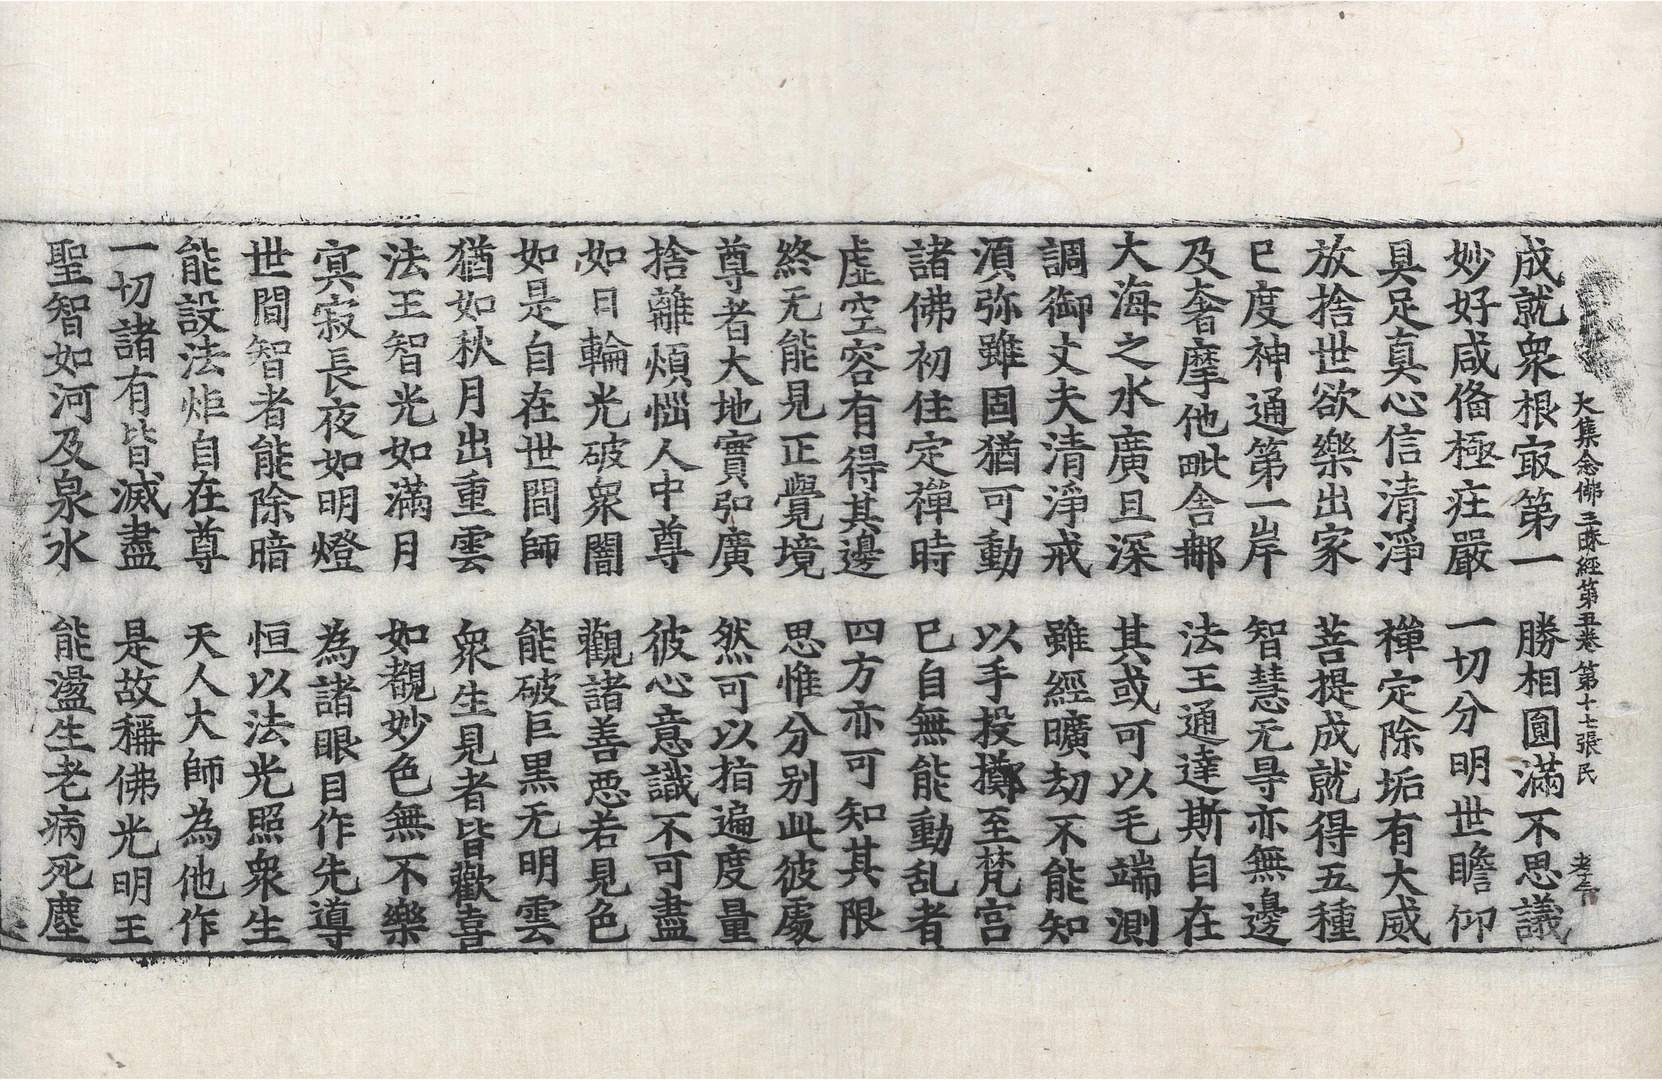 大集念佛三昧經第五卷 第十七張 民
成就衆根㝡第一 勝相圓滿不思議
妙好咸俻極庄嚴 一切分明世瞻仰
具足真心信清淨 禪定除垢有大威
放捨世欲樂出家 菩提成就得五種
已度神通第一岸 智慧无㝵亦無邊
及奢摩他毗舍𨚗 法王通達斯自在
大海之水廣且深 其或可以毛端測
調御丈夫清淨戒 雖經曠劫不能知
湏弥雖固猶可動 以手投擲至梵宫
諸佛初住定禪時 已自無能動乱者
虛空容有得其邊 四方亦可知其限
終无能見正覺境 思惟分别此彼處
尊者大地實弘廣 然可以指遍度量
捨離煩惱人中尊 彼心意識不可盡
如日輪光破衆闇 觀諸善惡若見色
如是自在世間師 能破巨黒无明雲
猶如秋月出重雲 衆生見者皆歡喜
法王智光如滿月 如覩妙色無不樂
㝠寂長夜如明燈 為諸眼目作先導
世間智者能除暗 恒以法光照衆生
能設法炬自在尊 天人大師為他作
一切諸有皆滅盡 是故稱佛光明王
聖智如河及泉水 能盪生老病死塵